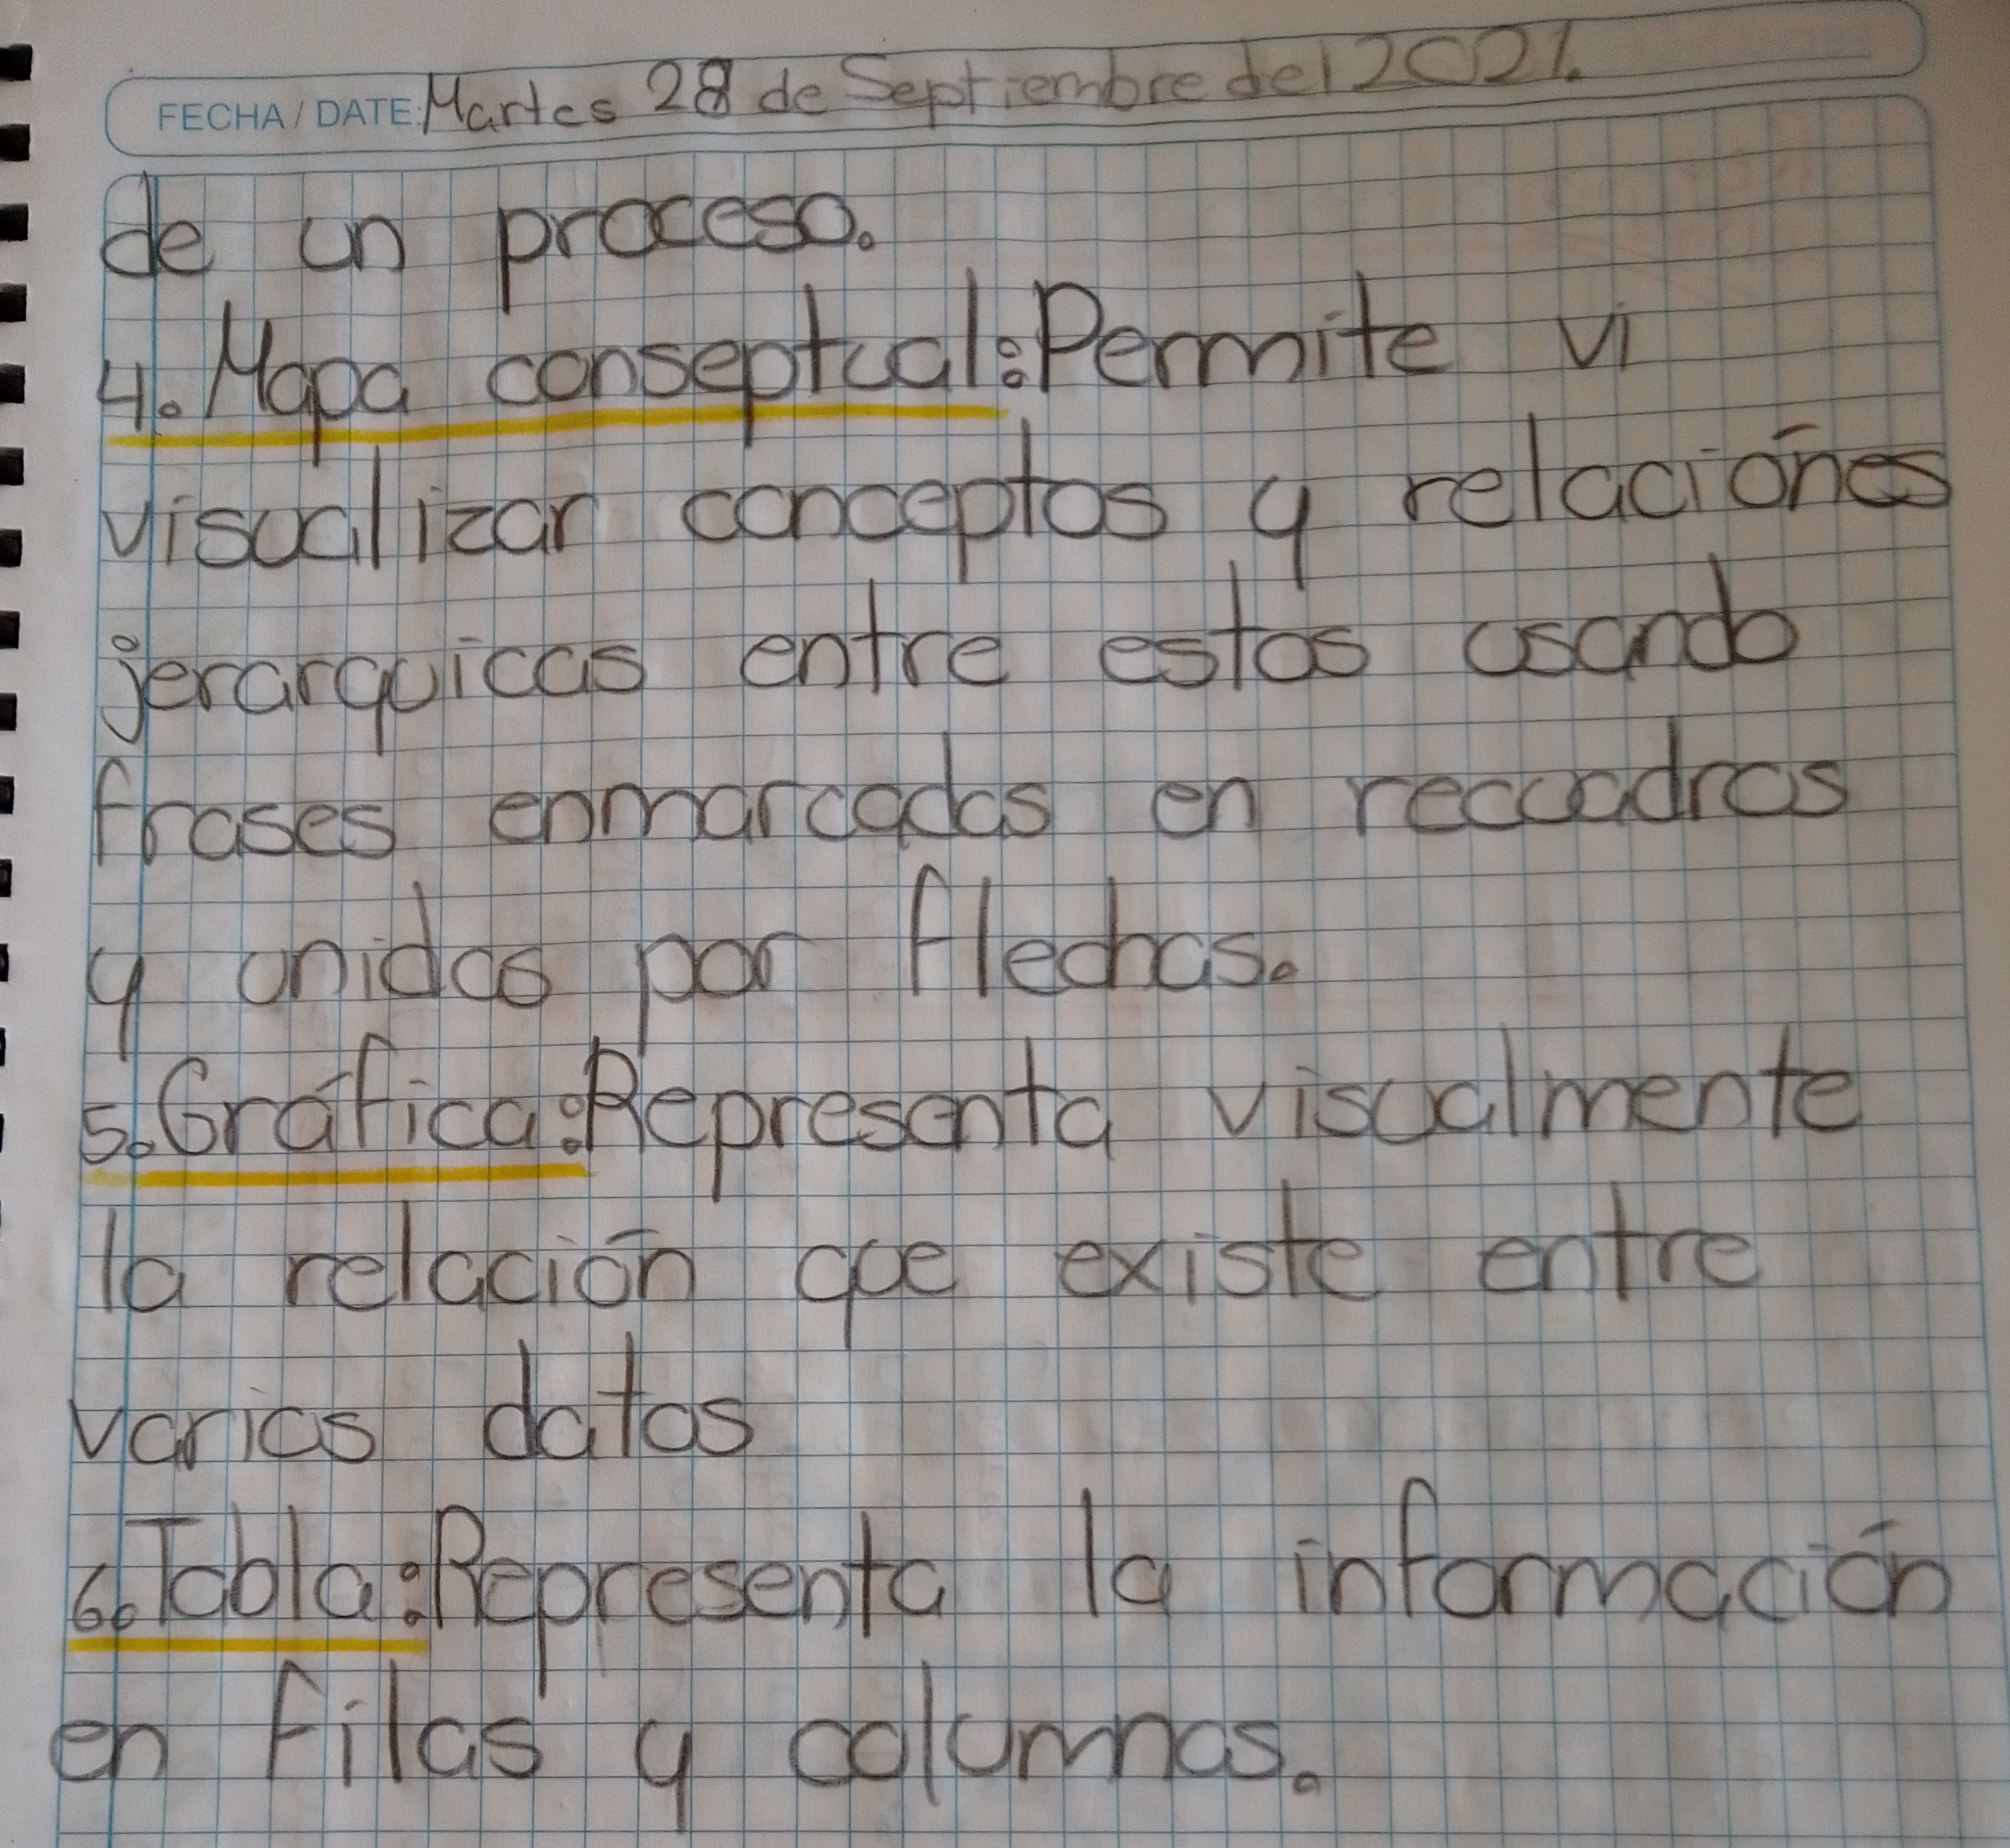 FECHA / DATE: Martes 28 de Septiembre del 2021.
de un proceso.
4. Mapa conseptual: Permite vi
visualizar conceptos y relaciónes
jerarquicas entre estos usando
frases enmarcadas en recuadros
y unidas por flechas.
5. Gráfica: Representa visualmente
la relación que existe entre
varios datos
6. Tabla: Representa la información
en filas y columnas.